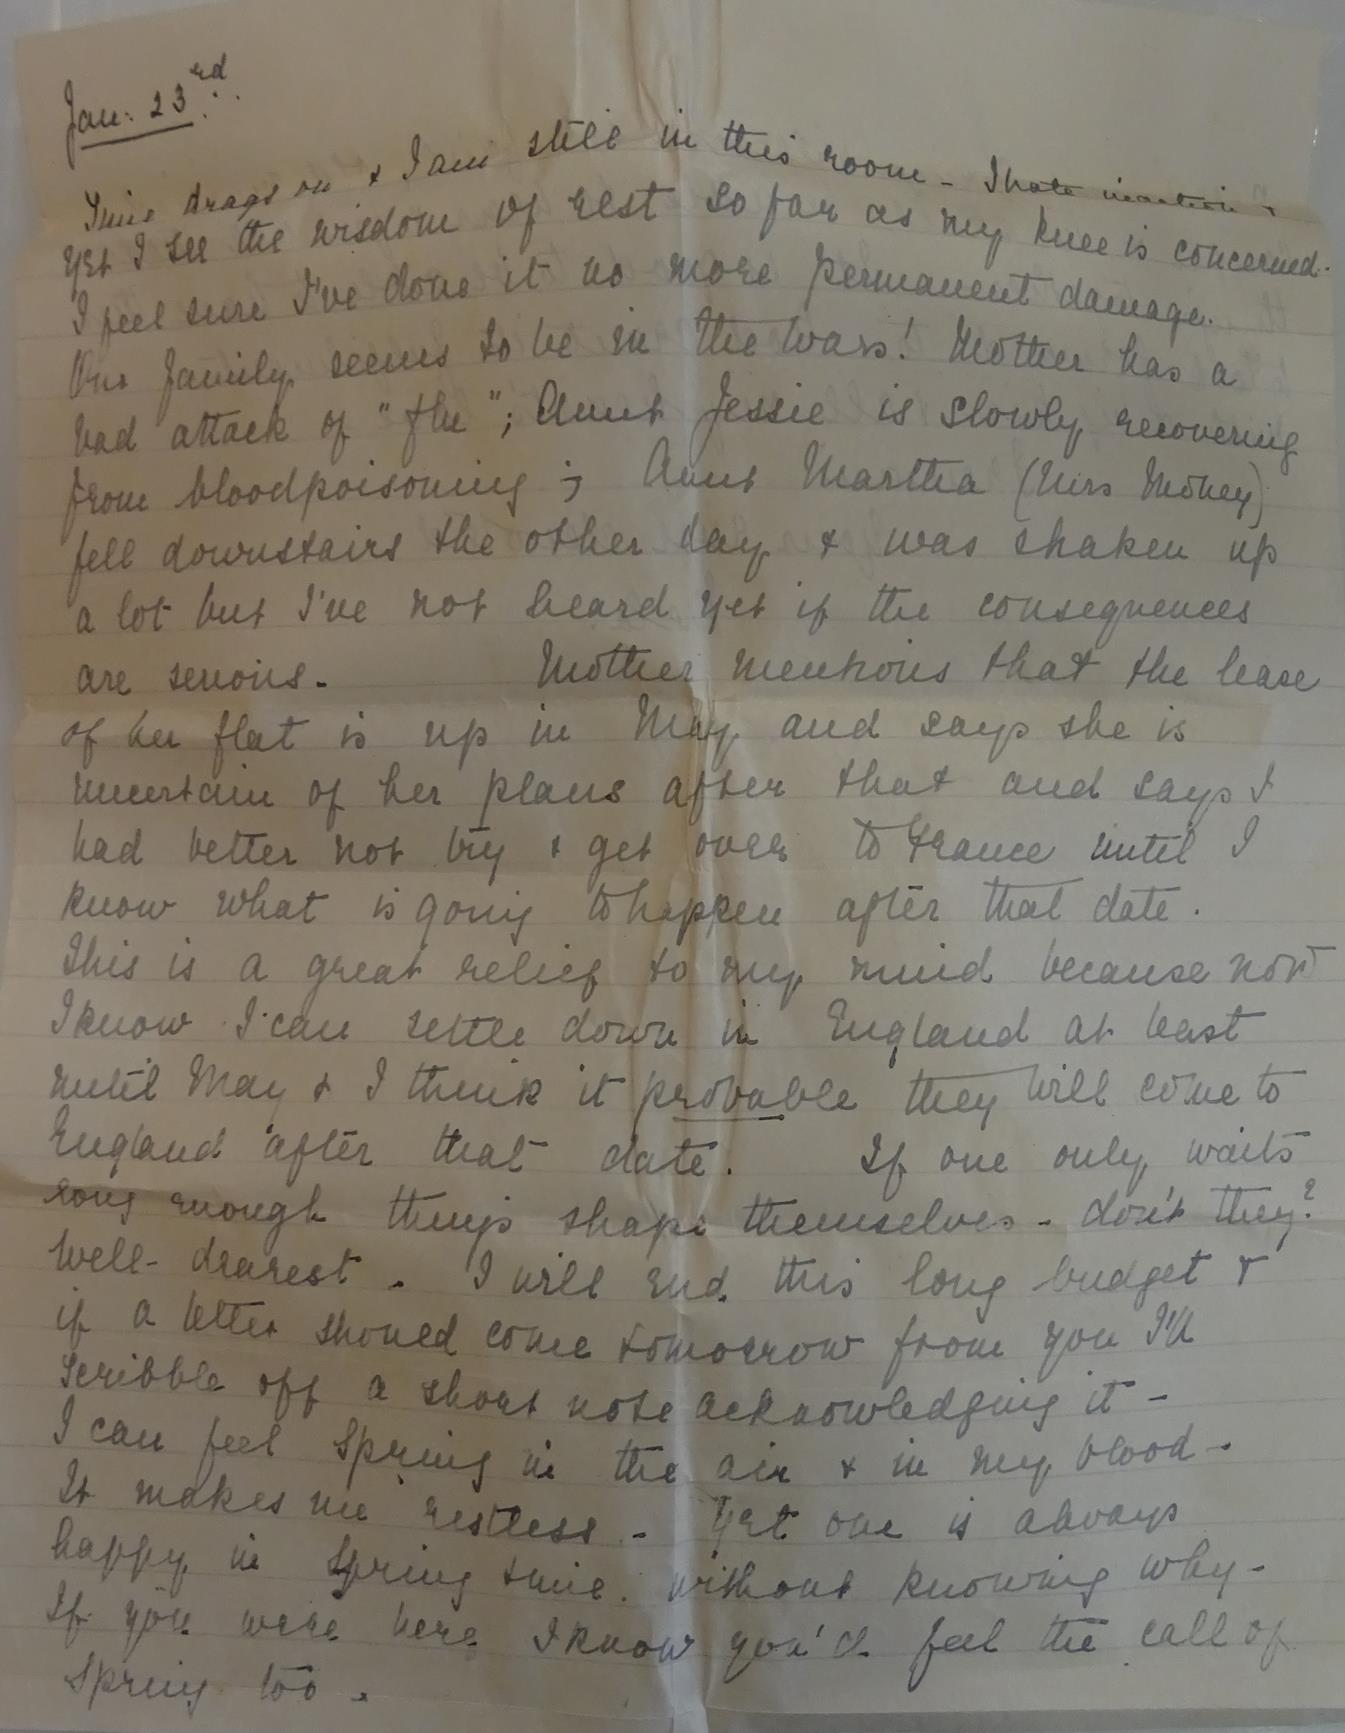 Jan: 23rd.
Time drags on & I am still in this room - I hate inaction &
yet I see the wisdom of rest so far as my knee is concerned.
I feel sure I've done it no more permanent damage.
Our family seems to be in the wars! Mother has a
bad attack of "flu"; Aunt Jessie is slowly recovering
from bloodpoisoning; Aunt Martha (Mrs Money)
fell downstairs the other day & was shaken up
a lot but I've not heard yet if the consequences
are serious. Mother mentions that the lease
of her flat is up in May and says she is
uncertain of her plans after that and says I
had better not try & get over to France until I
know what is going to happen after that date.
This is a great relief to my mind because now
I know I can settle down in England at least
until May & I think it probable they will come to
England after that date. If one only waits
long enough things shape themselves - don't they?
Well - dearest - I will end this long budget &
if a letter should come tomorrow from you I'll
scribble off a short note acknowledging it -
I can feel Spring in the air & in my blood -
It makes me restless - yet one is always
happy in Spring time without knowing why -
If you were here I know you'd feel the call of
Spring too.